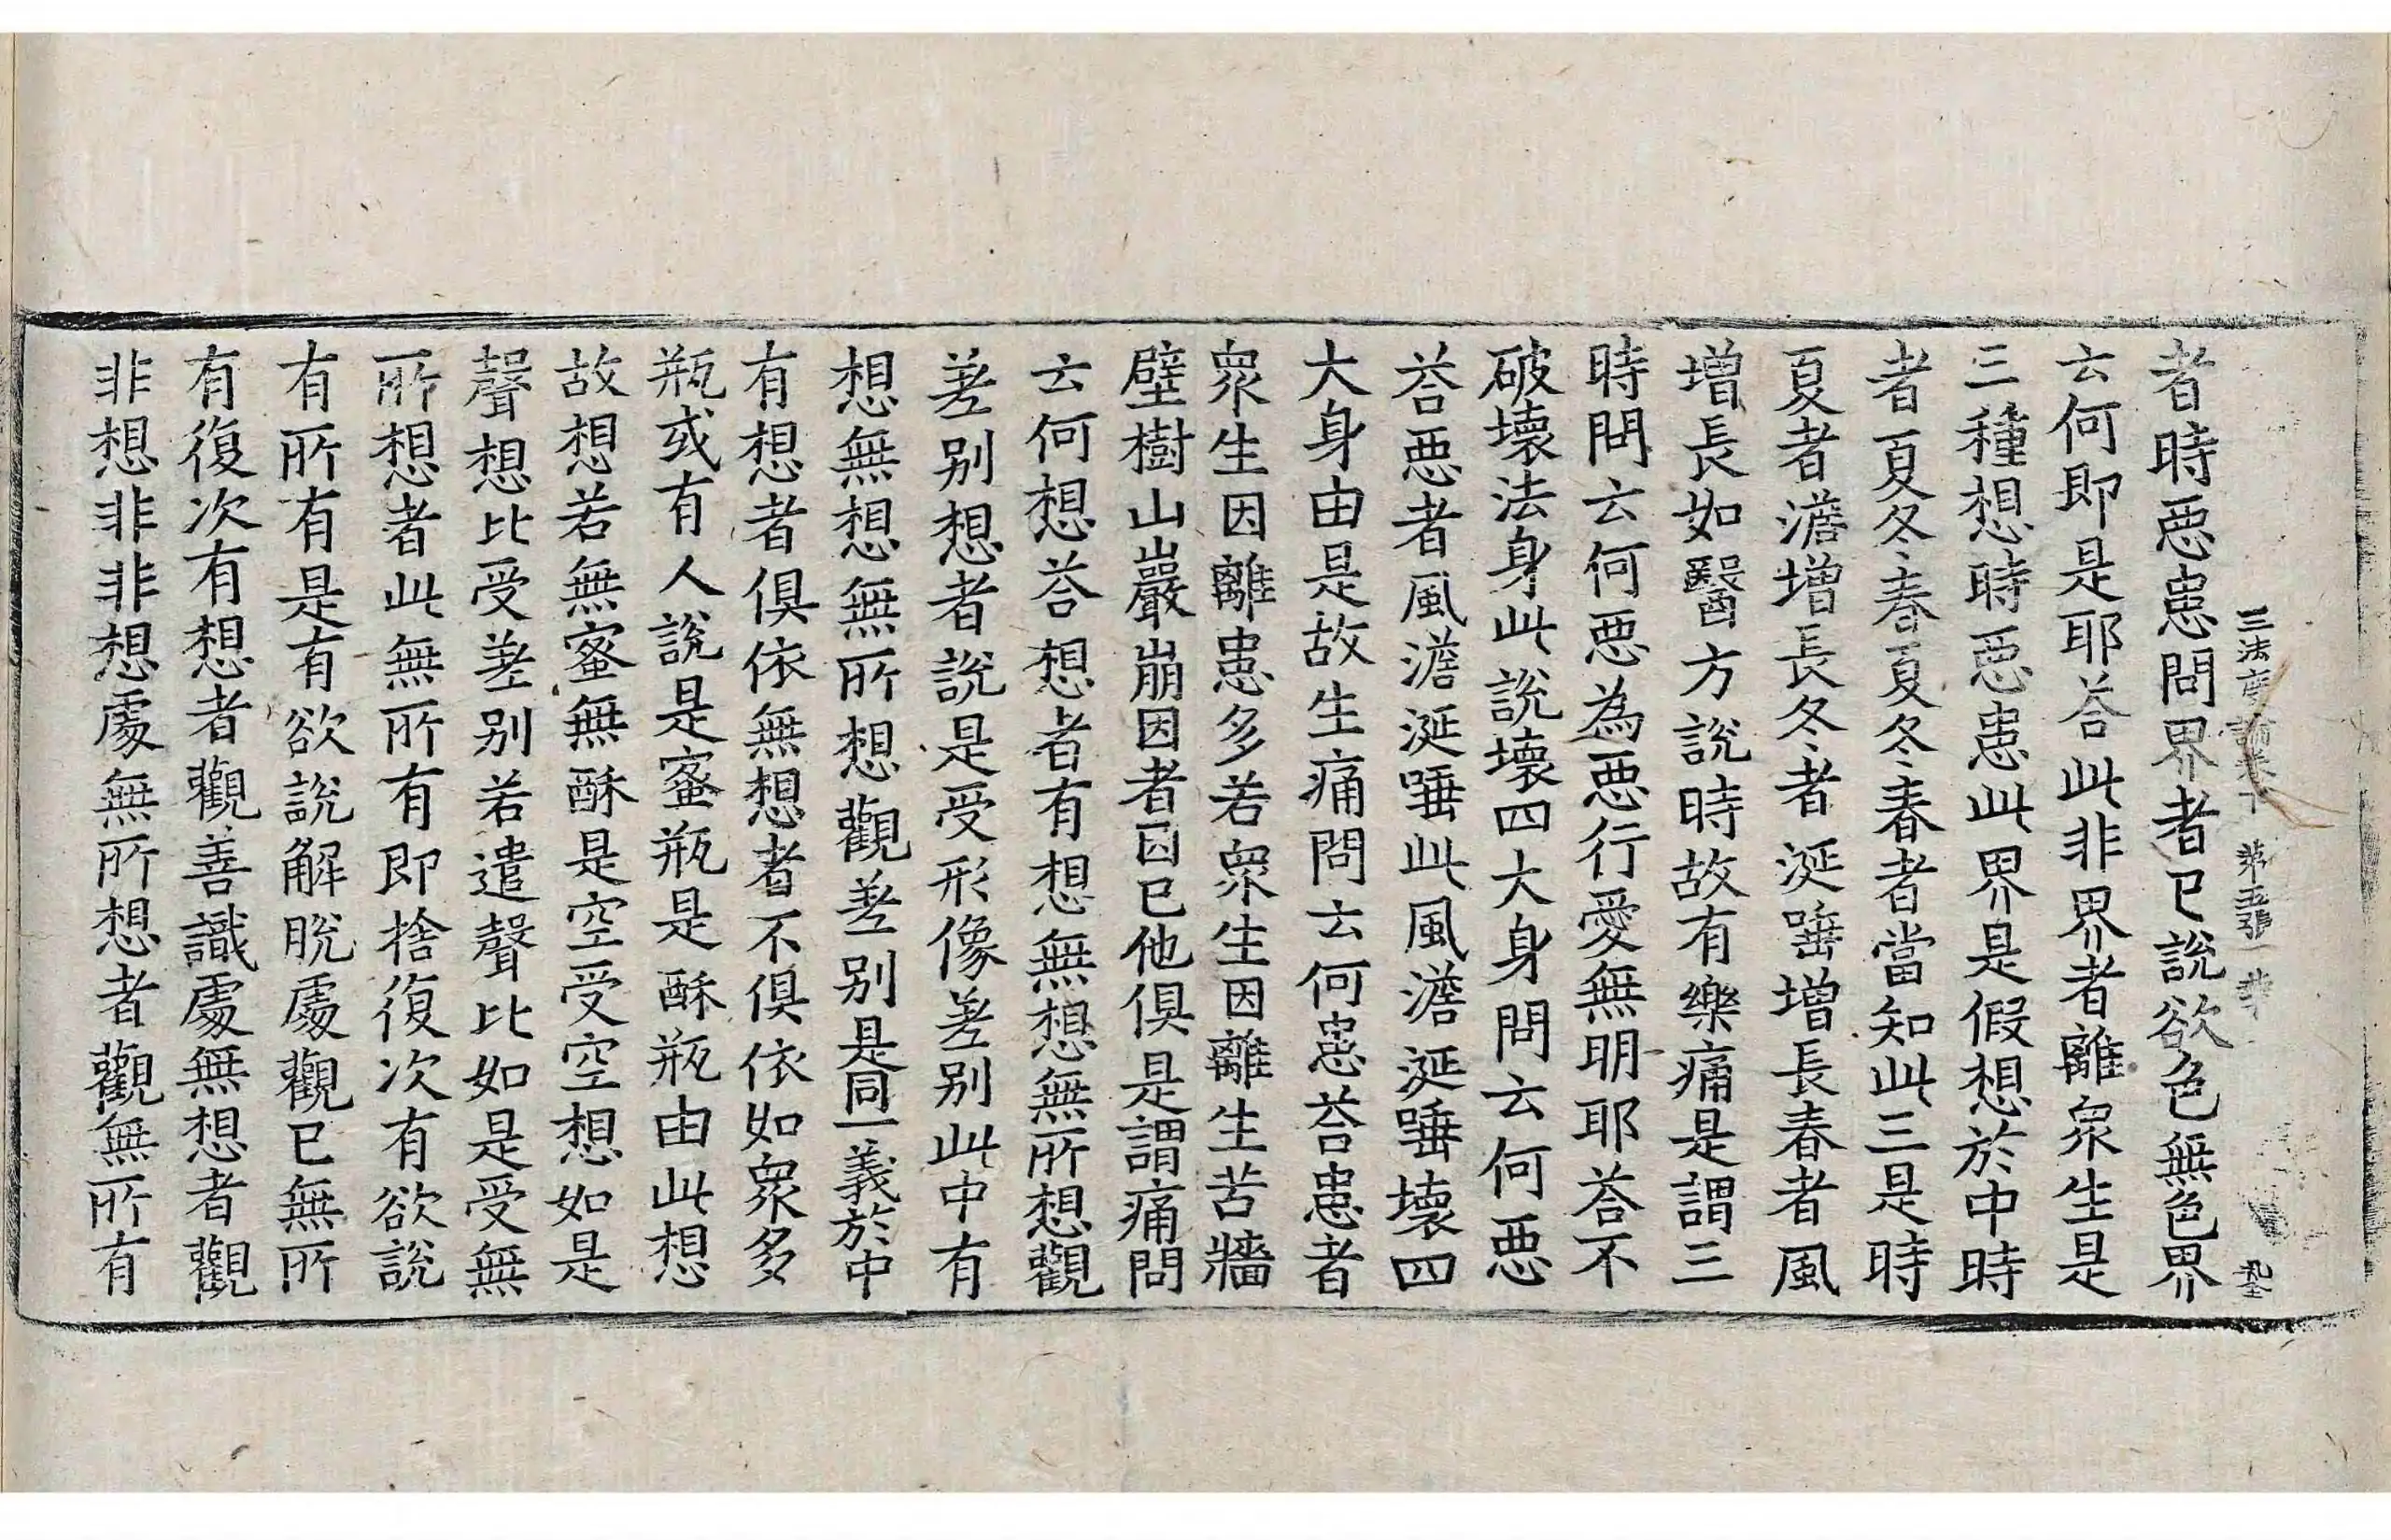 三法度論卷下 第五張 非
者時惡患問界者已說欲色無色界
云何即是耶荅此非界者離衆生是
三種想時惡患此界是假想於中時
者夏冬春夏冬春者當知此三是時
夏者澹增長冬者涎唾增長春者風
增長如醫方說時故有樂痛是謂三
時問云何惡為惡行愛無明耶荅不
破壞法身此說壞四大身問云何惡
荅惡者風澹涎唾此風澹涎唾壞四
大身由是故生痛問云何患荅患者
衆生因離患多若衆生因離生苦牆
壁樹山巖崩因者因已他俱是謂痛問
云何想荅想者有想無想無所想觀
差別想者說是受形像差別此中有
想無想無所想觀差別是同一義於中
有想者俱依無想者不俱依如衆多
瓶或有人說是蜜瓶是酥瓶由此想
故想若無蜜無酥是空受空想如是
聲想比受差別若遣聲比如是受無
所想者此無所有即捨復次有欲說
有所有是有欲說解脫處觀已無所
有復次有想者觀善識處無想者觀
非想非非想處無所想者觀無所有